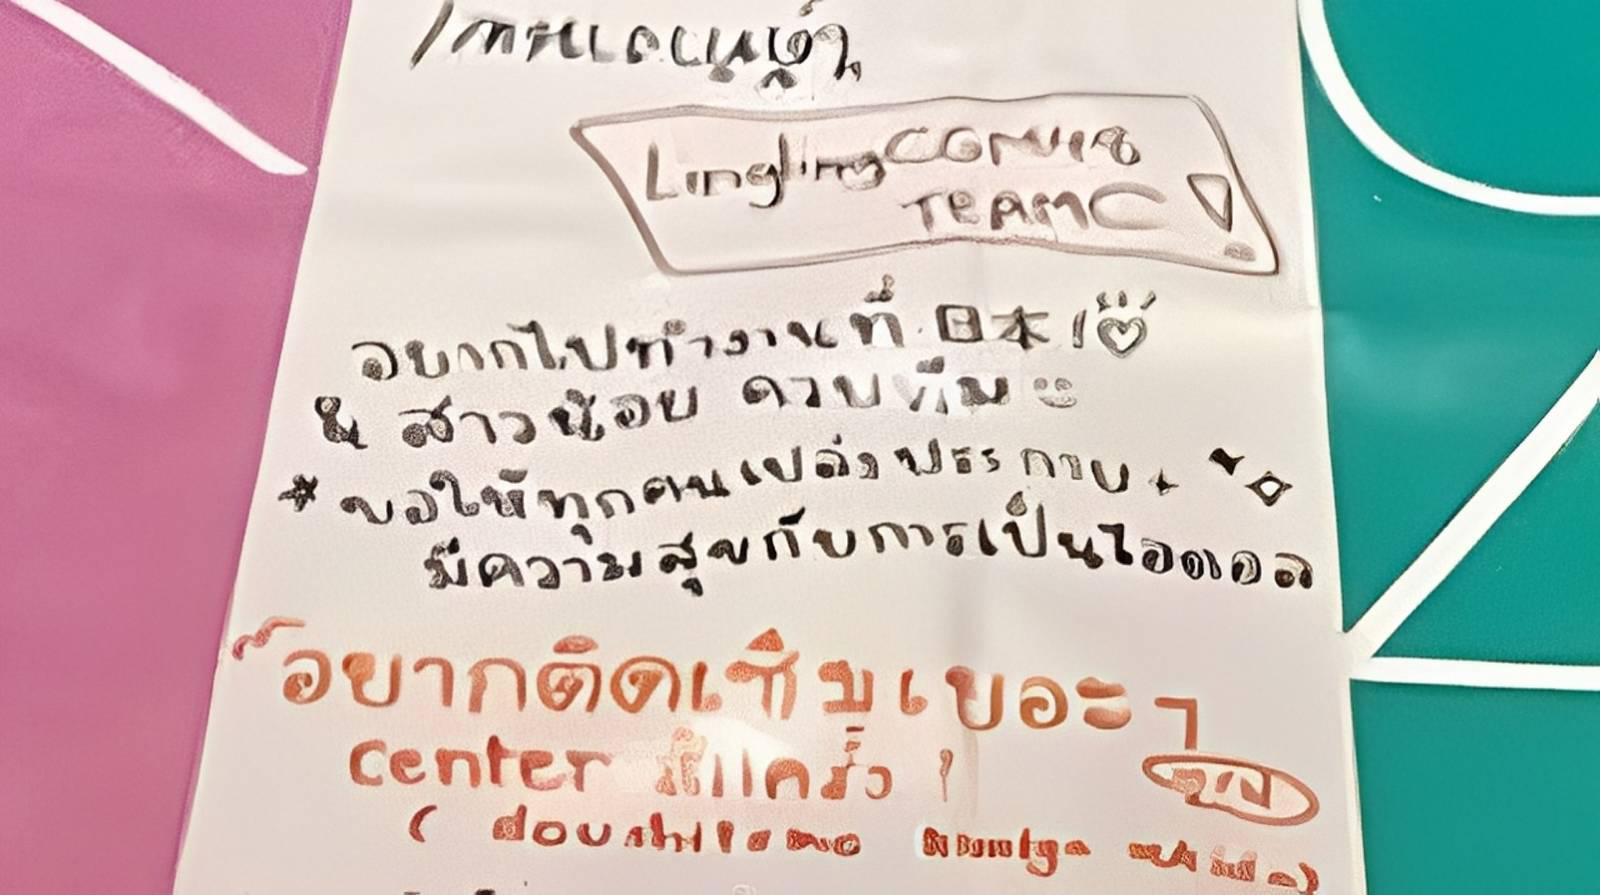 Lingling CGM48
TEAM C
อยากไปทำงานที่ 日本!
& สาวน้อย ควบทีม
ขอให้ทุกคนเปล่งประกาย
มีความสุขกับการเป็นไอดอล
อยากติดเซ็มเยอะๆ
center สักครั้ง !
( doushitemo